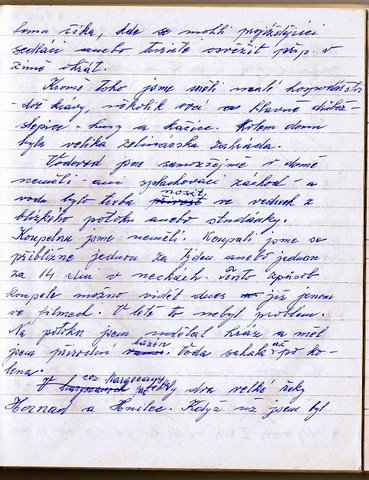 bomu říka, kde se mohli projíždějíci
sedláci anebo turisté osvěžit příp. v
zimě ohřát.
Kromě toho jsme měli malé hospodářství
- dvě kravy, několik ovcí a hlavně drůbež -
slepice - husy a kačice. Kolem domu
byla veliká zeleninárska zahrada.
Vodovod jsme samozřejmě v domě
neměli ani splachovací záchod - a
vodu bylo třeba nosit ve vedrech z
blízkého potoka anebo studánky.
Koupelnu jsme neměli. Koupali jsme se
přibližne jednou za týden anebo jednou
za 14 dní v neckách. Tento způsob
koupele možno vidět dnes již jenom
ve filmech. V létě to nebyl problém.
Na potoku jsem nadělal hráz a měl
jsem prírodní bazén. Voda sahala až po ko-
lena.
cez Margecany tekly dva velké řeky
Hornad a Hnilec. Když už jsem byl